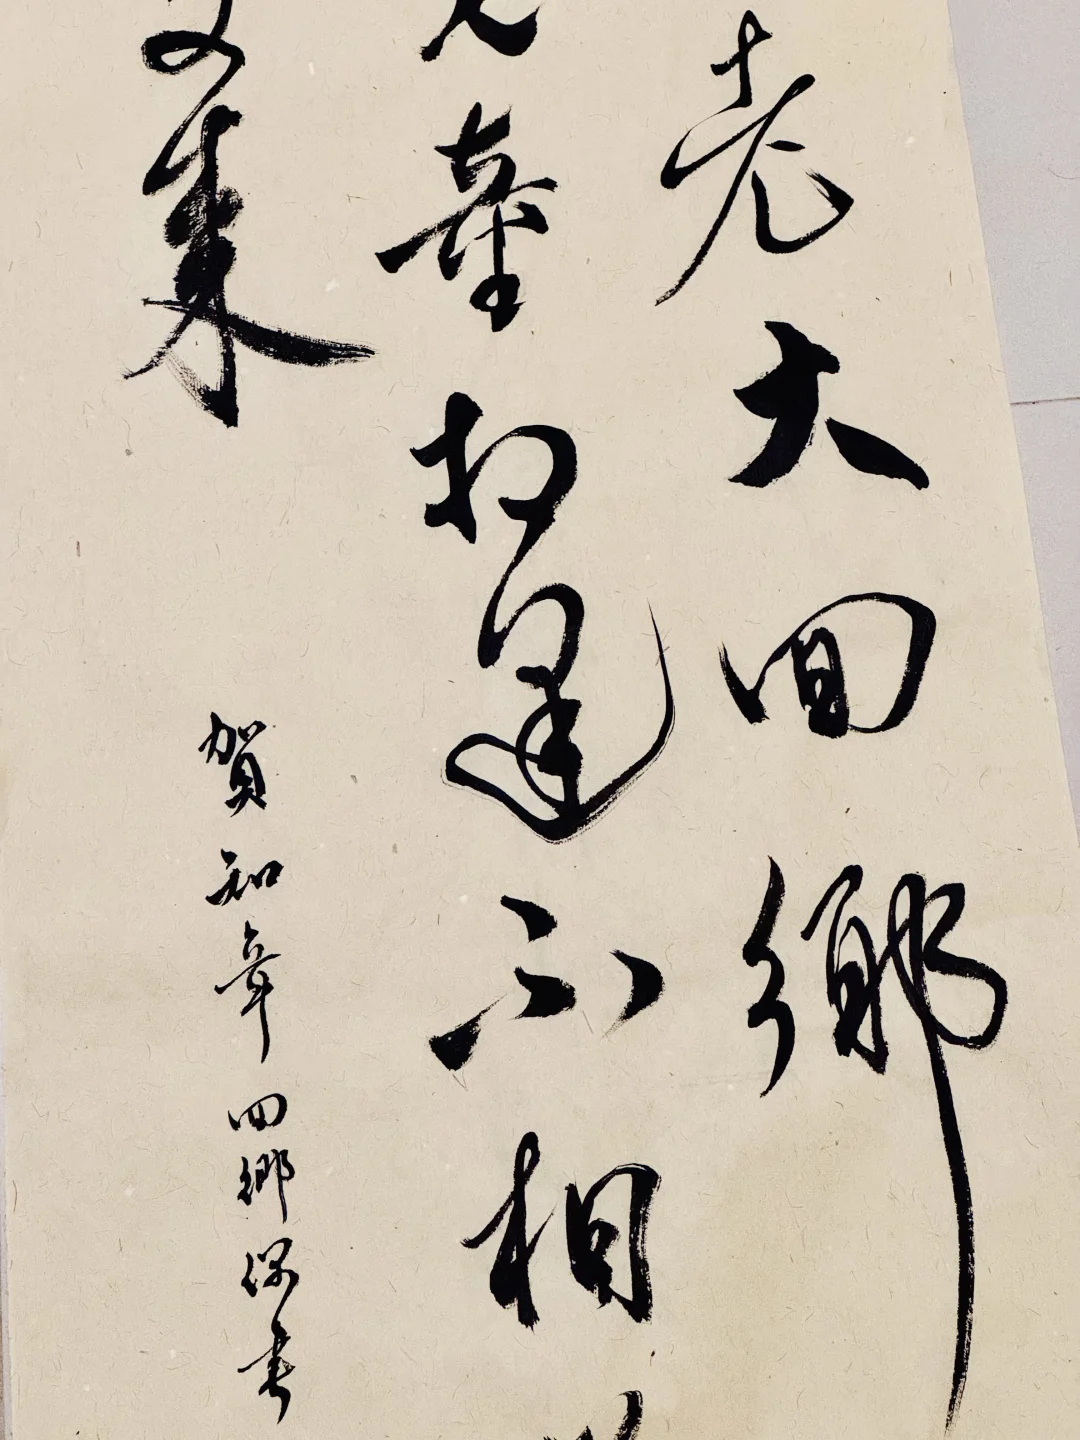 老大回鄉
童不相
來
賀知章回鄉偶書